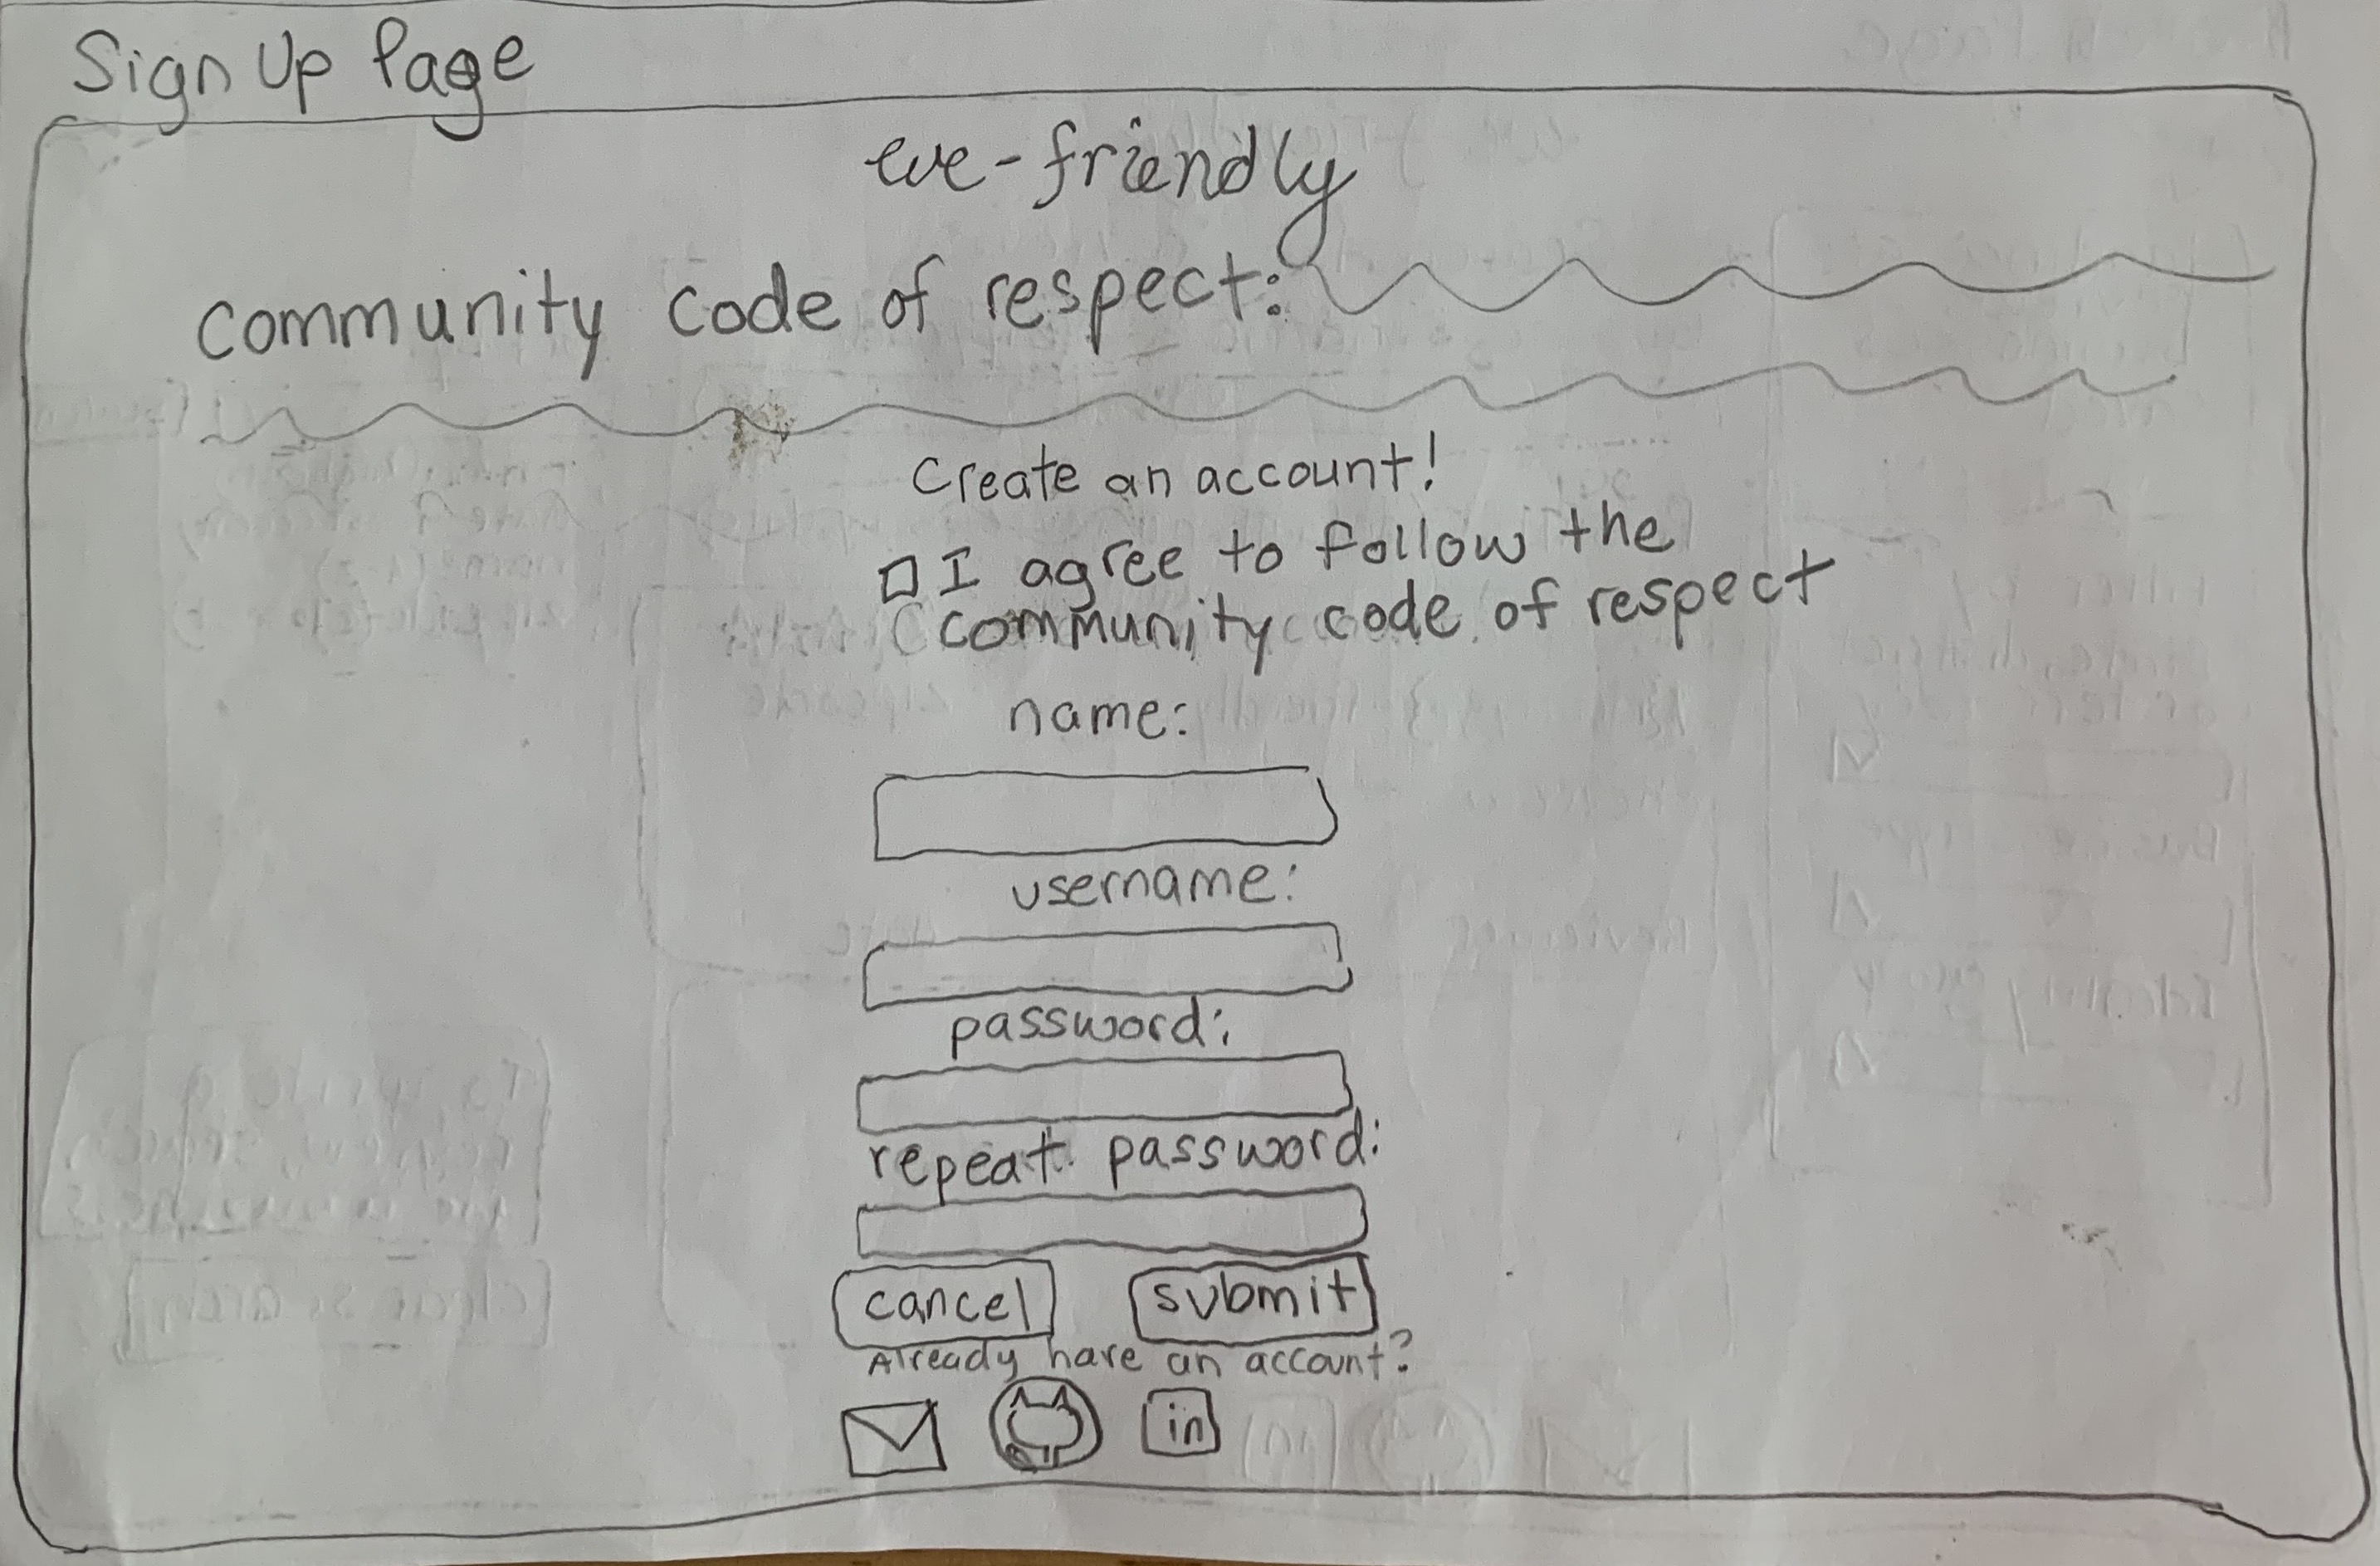 Sign Up Page
eve-friendly
community code of respect:
Create an account!
I agree to follow the
community code of respect
name:
username:
password:
repeat password:
cancel submit
Already have an account?
in